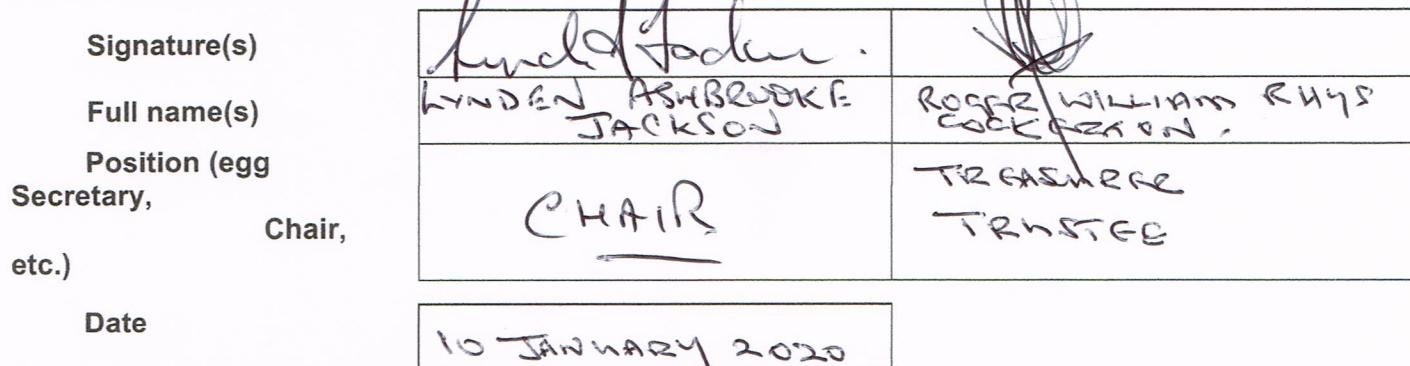 Signature(s)
Full name(s)
LYNDEN ASHBROOKE
JACKSON
ROGER WILLIAM RHYS
COCKERTON.
Position (egg
Secretary,
Chair,
etc.)
CHAIR
TREASURER
TRUSTEE
Date
10 JANUARY 2020